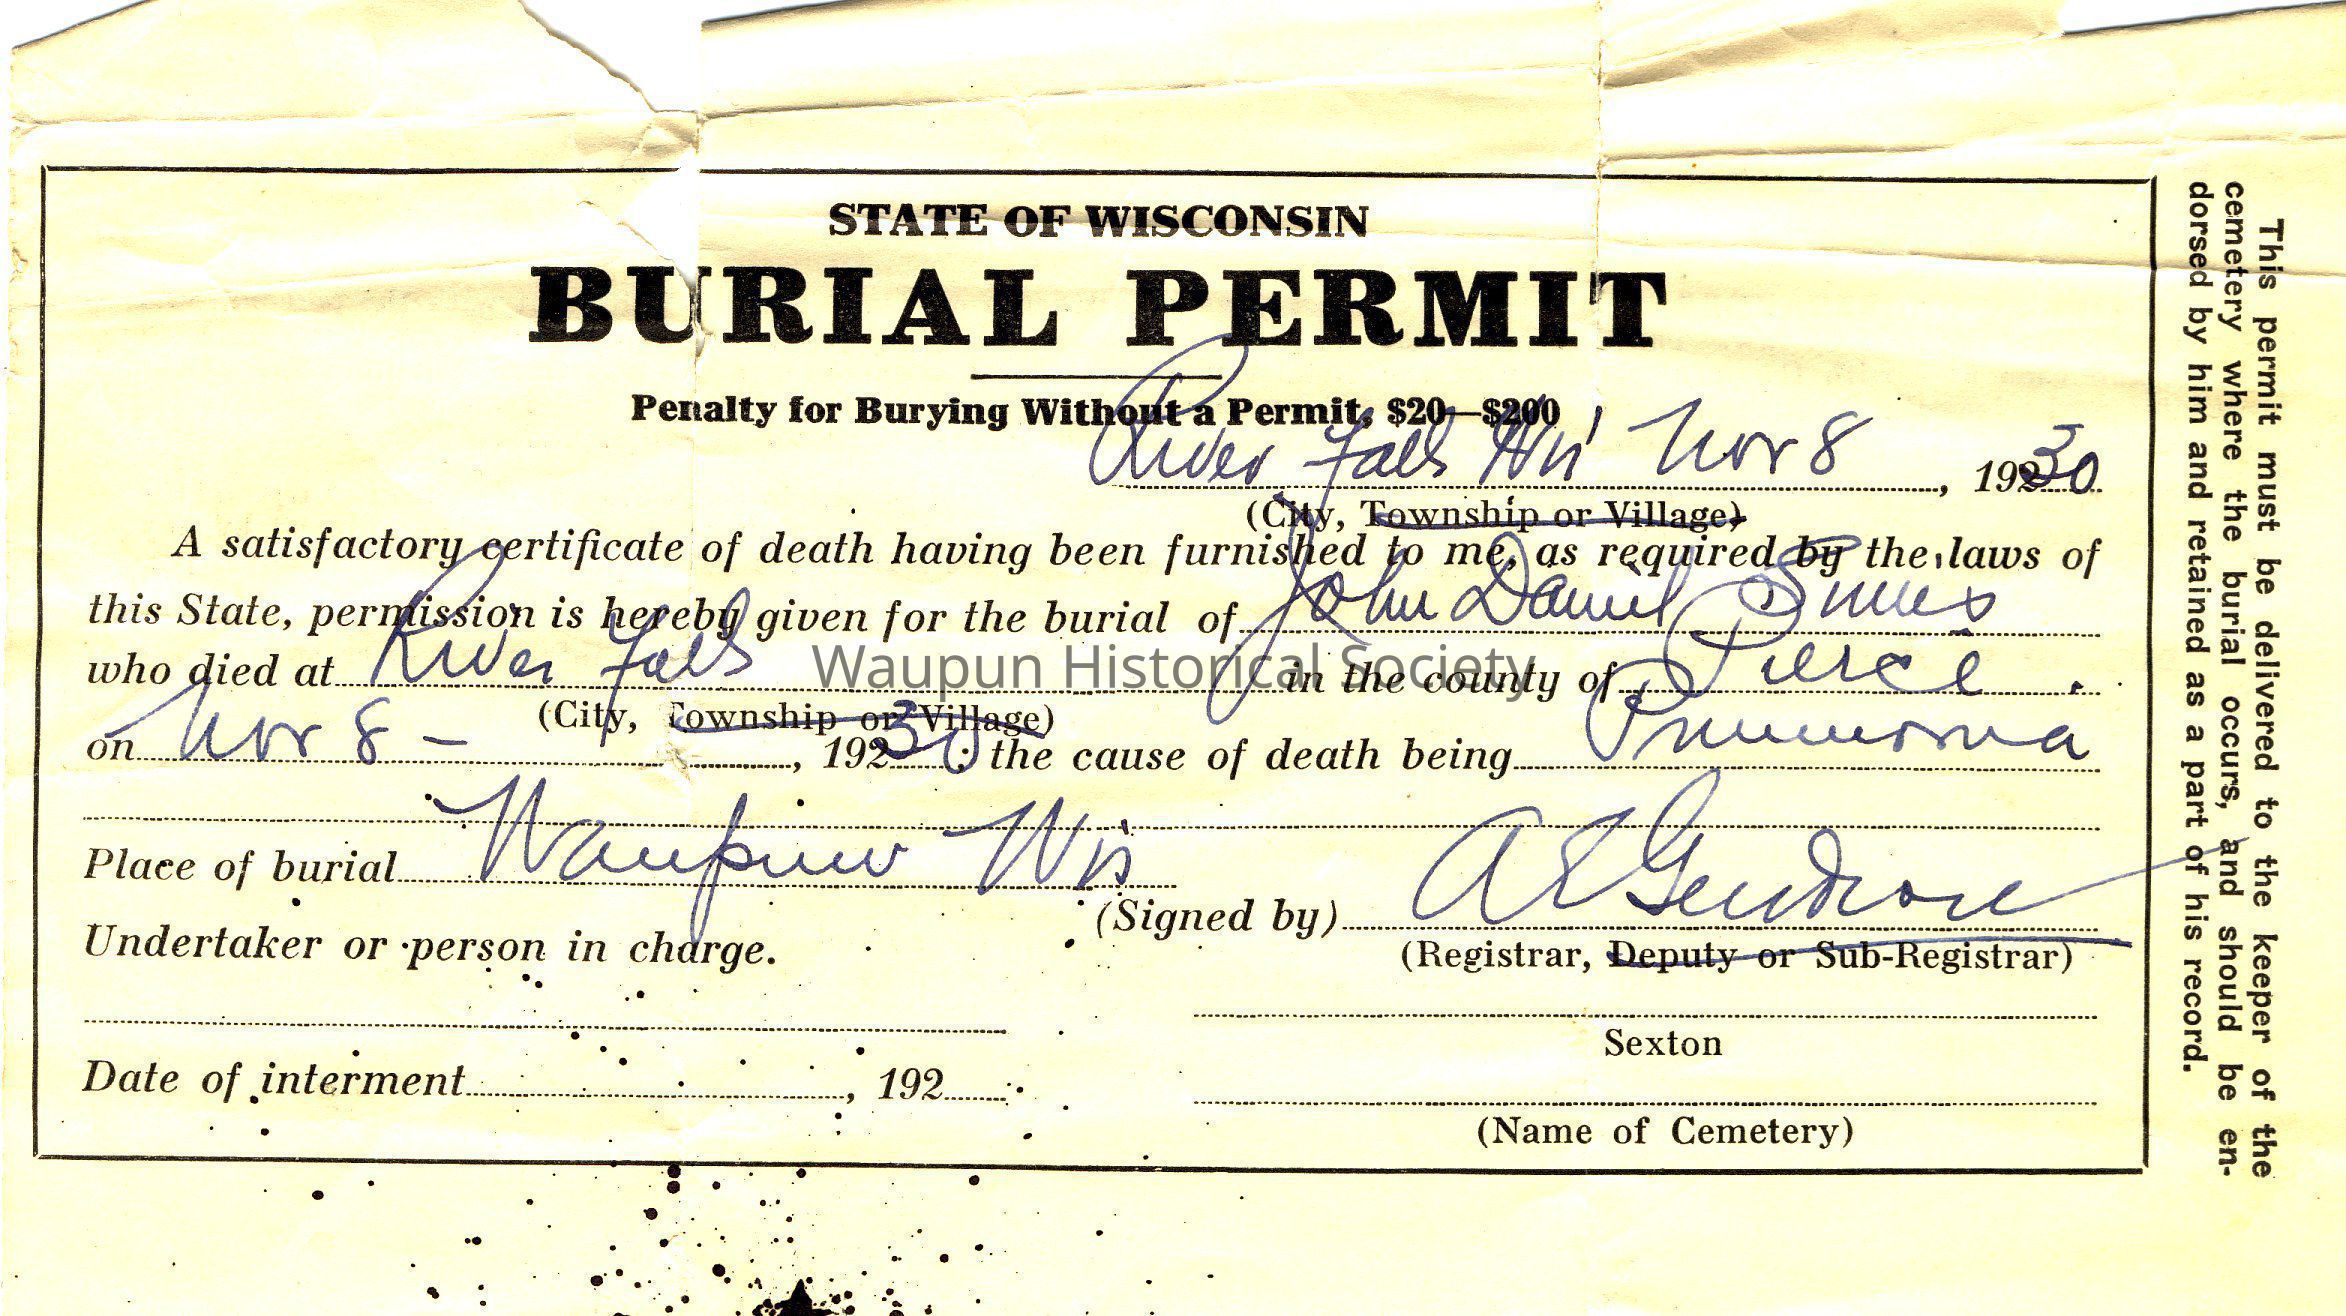 STATE OF WISCONSIN
BURIAL PERMIT
Penalty for Burying Without a Permit, $20—$200
River Falls Wis Nov 8, 19230
(City, Township or Village)
A satisfactory certificate of death having been furnished to me, as required by the laws of
this State, permission is hereby given for the burial of John Daniel
who died at River Falls in the county of Pierce.
(City, Township or Village)
on Nov 8 —, 19230; the cause of death being Pneumonia
Place of burial Waupun Wis
(Signed by) A E Gendron
(Registrar, Deputy or Sub-Registrar)
Undertaker or person in charge.
Sexton
Date of interment, 192
(Name of Cemetery)
This permit must be delivered to the keeper of the
cemetery where the burial occurs, and should be en-
dorsed by him and retained as a part of his record.
Waupun Historical Society